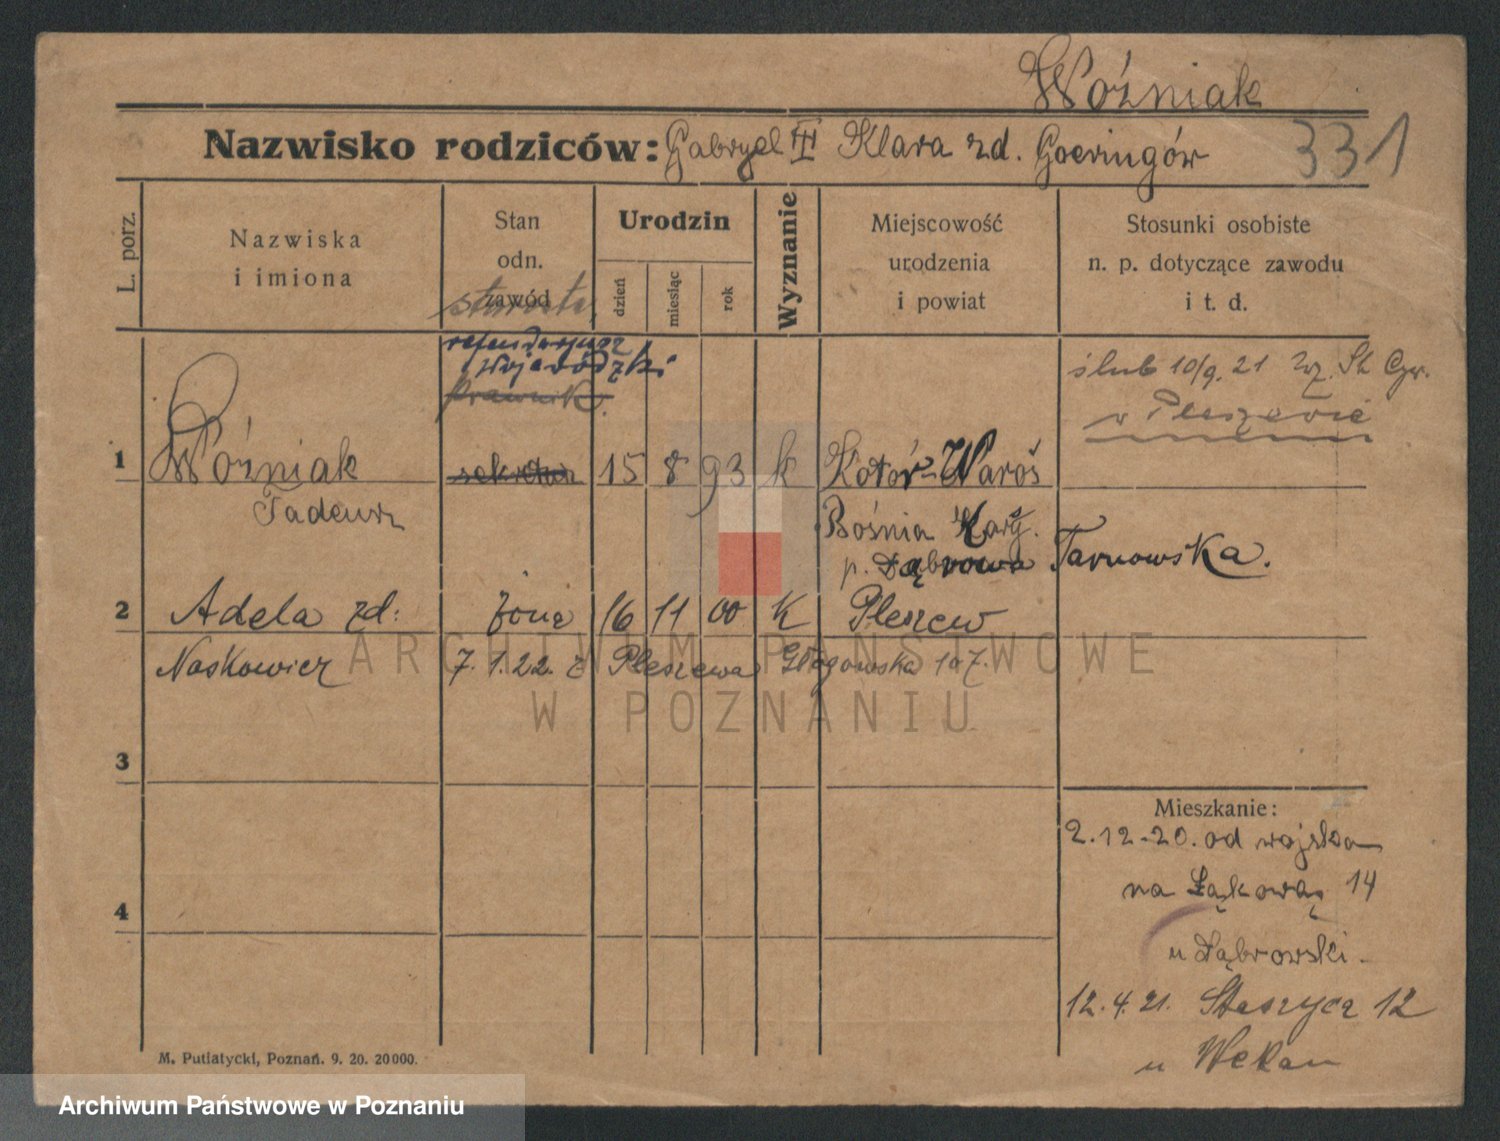 Woźniak
Nazwisko rodziców: Gabryel Klara zd. Goeringów 331
L. porz.
Nazwiska
i imiona
Stan
odn.
zawód
starosta
Urodzin
dzień
miesiąc
rok
Wyznanie
Miejscowość
urodzenia
i powiat
Stosunki osobiste
n. p. dotyczące zawodu
i t. d.
referendarjusz
wojewódzki
prawnik
ślub 10/9. 21
w Pleszewie
1 Woźniak sekretarz 15 8 93 k Kotor-Waroš
Tadeusz
Bośnia
p. Dąbrowa Tarnowska.
2 Adela zd: żona 16 11 00 K Pleszew
Naskowicz 7. 1. 22. z Pleszewa Głogowska 107.
3
4
Mieszkanie:
2.12-20. od wojska
na Łąkową 14
u Dąbrowski-
12.4.21. Staszyca 12
u
M. Putiatycki, Poznań. 9. 20. 20000.
ARCHIWUM PAŃSTWOWE
W POZNANIU
Archiwum Państwowe w Poznaniu